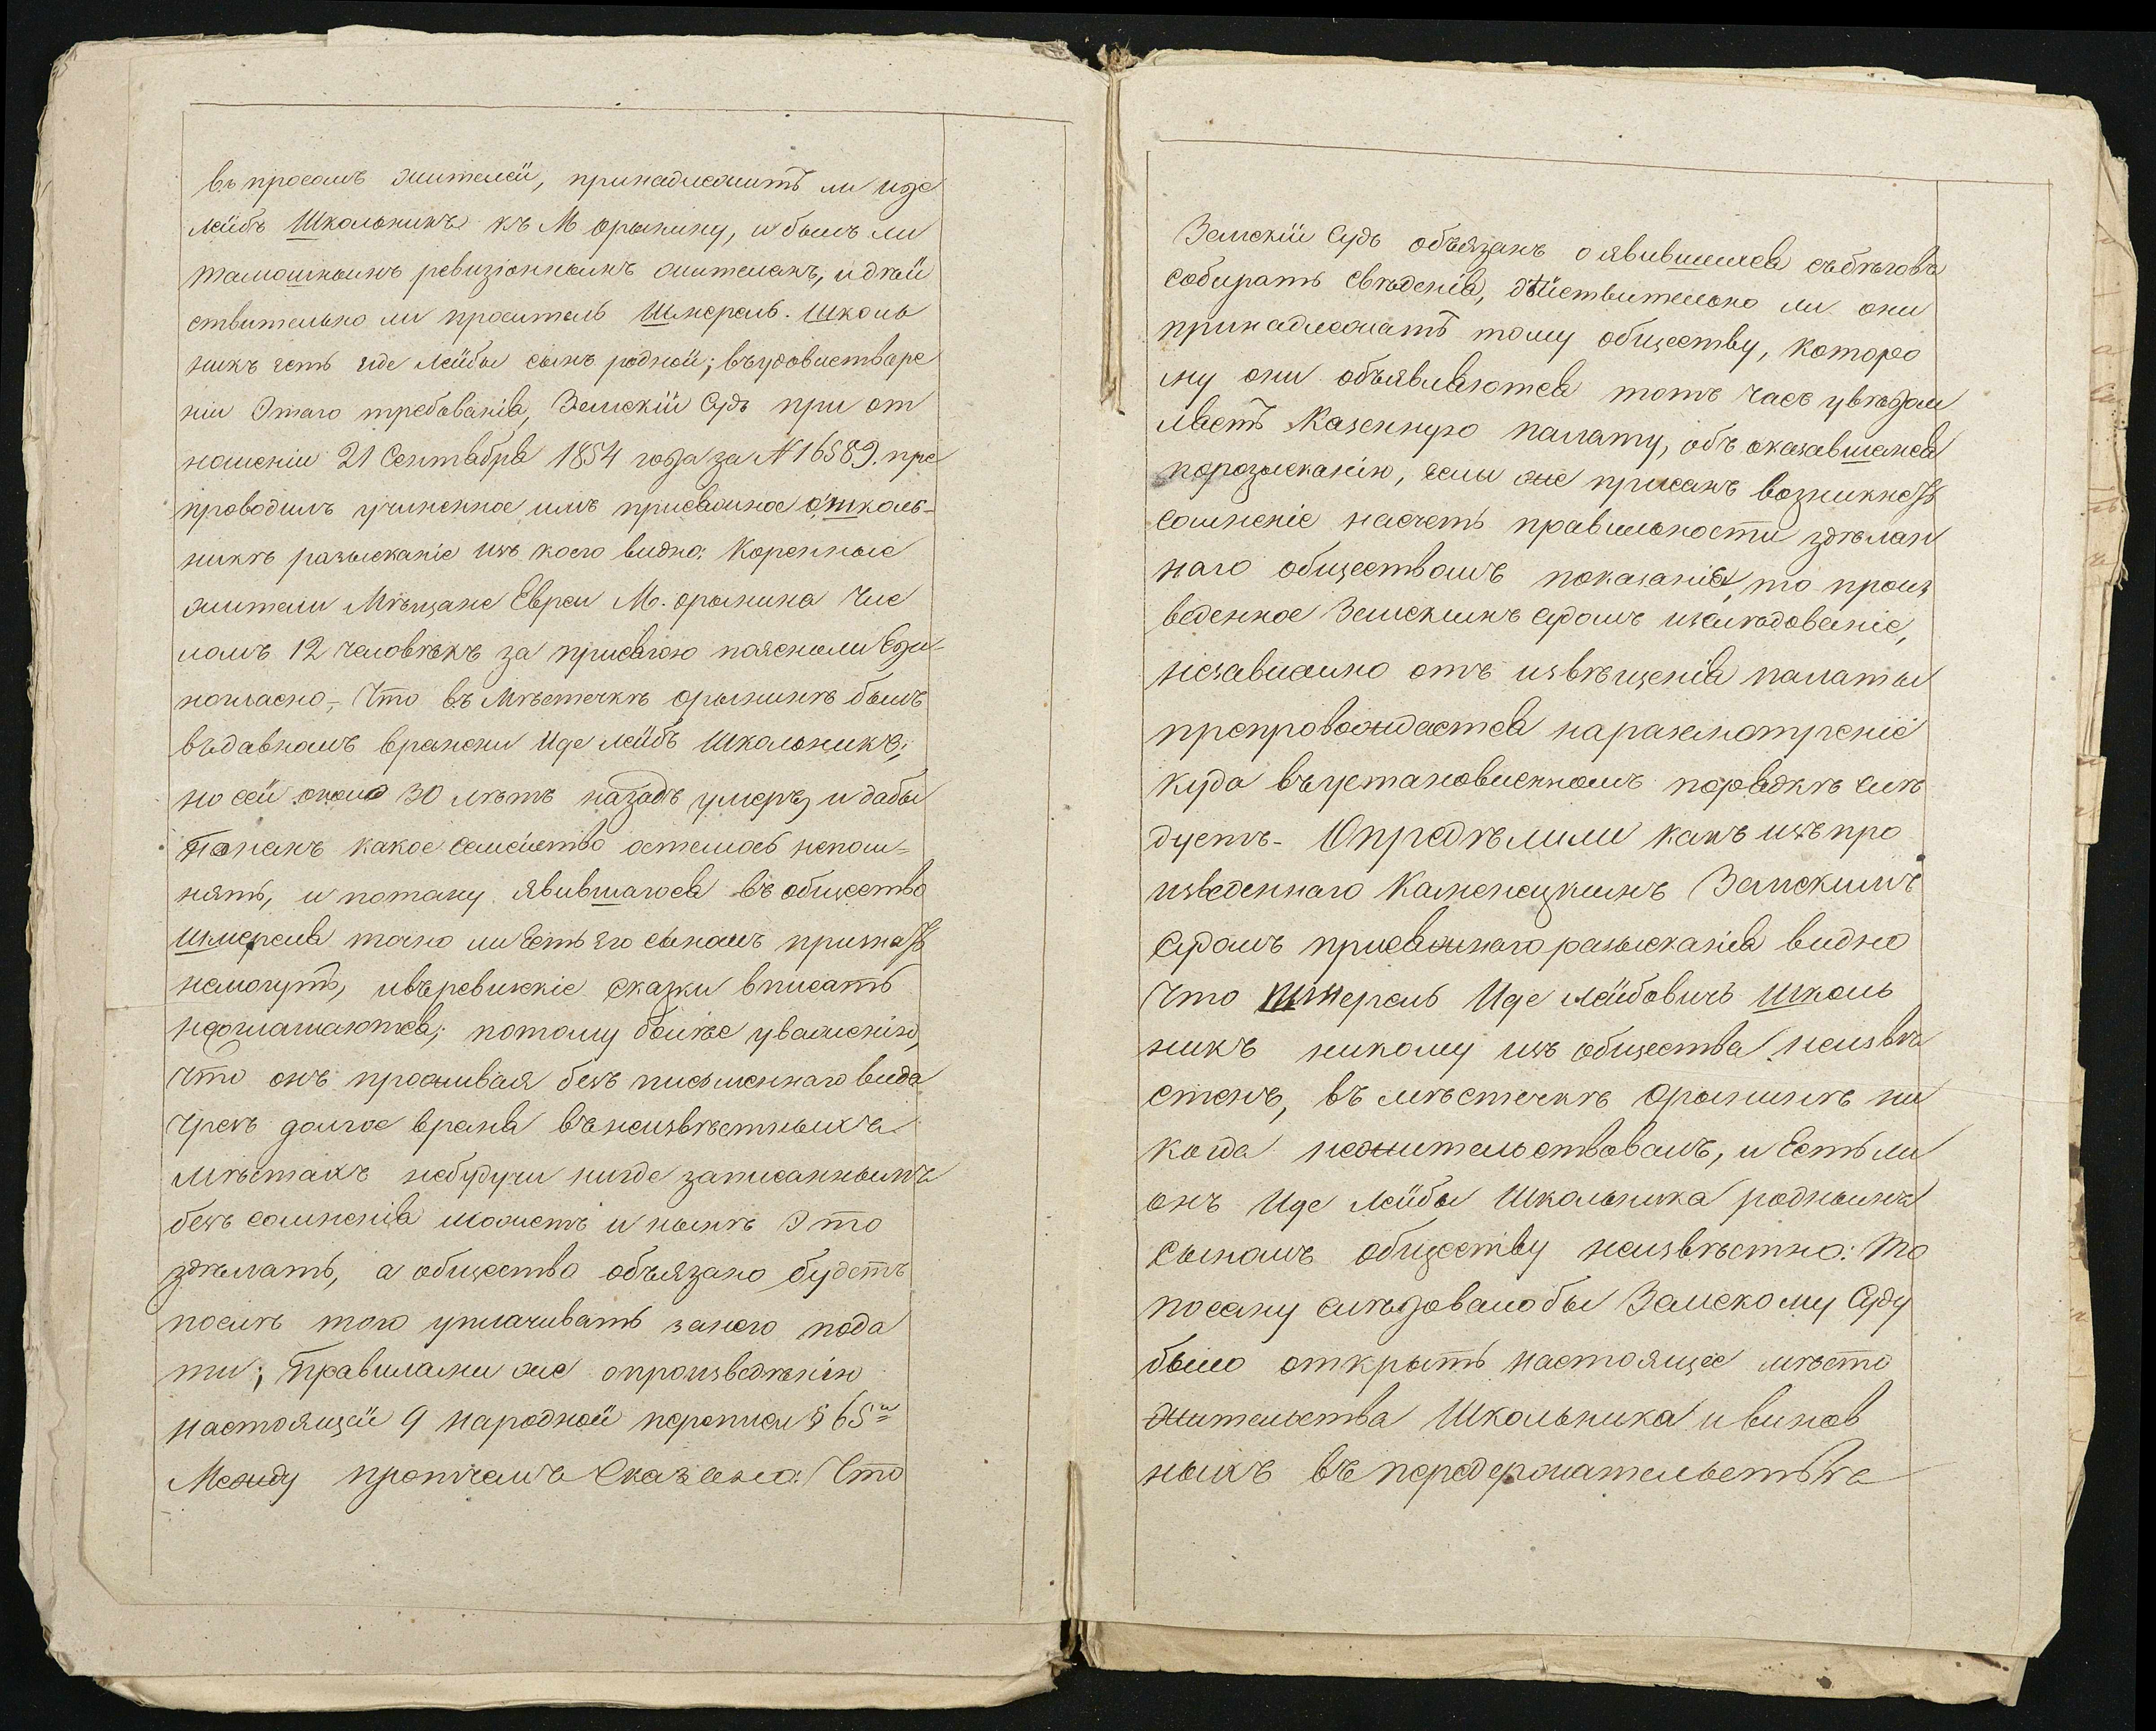 въпросомъ жителей, принадлежитъ ли иде
лейбъ Школьникъ къ М Орынину, и былъ ли
тамошнымъ ревизіоннымъ жителемъ, и дѣй
ствительно ли проситель Шмерель Школь
никъ есть иде Лейбы сынъ родной; въудовлетворе
ніи Этаго требованія, Земскій Судъ при от
ношеніи 21 Сентября 1854 года за N 16589. пре
проводилъ учиненное имъ присяжное о школь-
никѣ разысканіе изъ коего видно: Коренные
жители Мѣщане Евреи М. Орынина Чис
ломъ 12 человѣкъ за присягою пояснили Еди-
ногласно, Что въ Мѣстечкѣ Орынинѣ былъ
въдавномъ времени Иде Лейбъ Школьникъ;
но сей около 30 лѣтъ назадъ умеръ, и дабы
По немъ какое семейство осталось непом-
нятъ, и потому явившагося въ общество
Шмереля точно ли Есть Его сыномъ признать
немогутъ, ивъревизкіе сказки вписать
несоглашаются; потому болѣе уваженію,
Что онъ проживая безъ письменнаго вида
Чрезъ долгое время въ неизвѣстныхъ
Мѣстахъ небудучи нигде записаннымъ
безъ сомненія можетъ и нынѣ Это
здѣлать, а общество объязано будетъ
послѣ того уплачивать занего пода
ти; Правилами же опроизведѣнію
настоящей 9 народной переписи § 65
Между протчемъ Сказано: Что
Земскій Судъ объязанъ о явившемся събѣговъ
собирать Свѣденія, дѣйствительно ли они
принадлежатъ тому обществу, Которо
му они объявляются тотъ часъ увѣдом
ляетъ Казенную палату, объ оказавшемся
поразысканію, если же присемъ возникнетъ
Сомненіе насчетъ правильности здѣлан
наго обществомъ показанія, то произ
веденное Земскимъ Судомъ изслѣдованіе,
независимо отъ извѣщенія палаты
препровождается наразсмотреніе
куда въустановленномъ порядкѣ слѣ
дуетъ- Опредѣлили какъ изъ про
изведеннаго Каменецкимъ Земскимъ
Судомъ присяжнаго разысканія видно
Что Шмерель Иде Лейбовичъ Школь
никъ никому изъ общества неизвѣ
стенъ, въ мѣстечкѣ Орынинѣ ни
когда нежительствовалъ, и Есть ли
онъ Иде Лейбы Школьника роднымъ
Сыномъ обществу неизвѣстно: То
посему слѣдовалобы Земскому Суду
было открыть настоящее мѣсто
Жительства Школьника и винов
ныхъ въ передержательствѣ